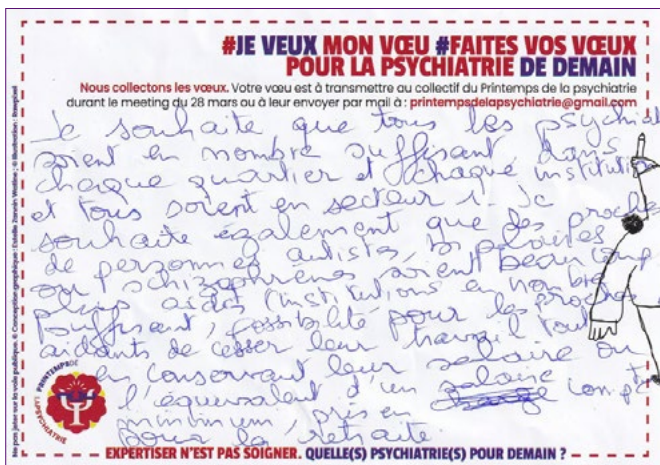 #JE VEUX MON VŒU #FAITES VOS VŒUX
POUR LA PSYCHIATRIE DE DEMAIN
Nous collectons les vœux. Votre vœu est à transmettre au collectif du Printemps de la psychiatrie
durant le meeting du 28 mars ou à leur envoyer par mail à : printempsdelapsychiatrie@gmail.com
Je souhaite que tous les psychiat
soient en nombre suffisant dans
chaque quartier et chaque instituti
et tous soient en secteur 1. Je
souhaite également que des proches
de personnes autistes, bipolaires
ou schizophrènes soient beaucoup
plus aidés (institutions en nombre
suffisant, possibilité pour les proches
aidants de cesser leur travail tout
en conservant leur salaire ou
l'équivalent d'un salaire
minimum, pris en compte
pour la retraite.
PRINTEMPS DE
LA PSYCHIATRIE
EXPERTISER N'EST PAS SOIGNER. QUELLE(S) PSYCHIATRIE(S) POUR DEMAIN ?
Ne pas jeter sur la voie publique. © Conception graphique : Estelle Zannin Watine ; © Illustration :